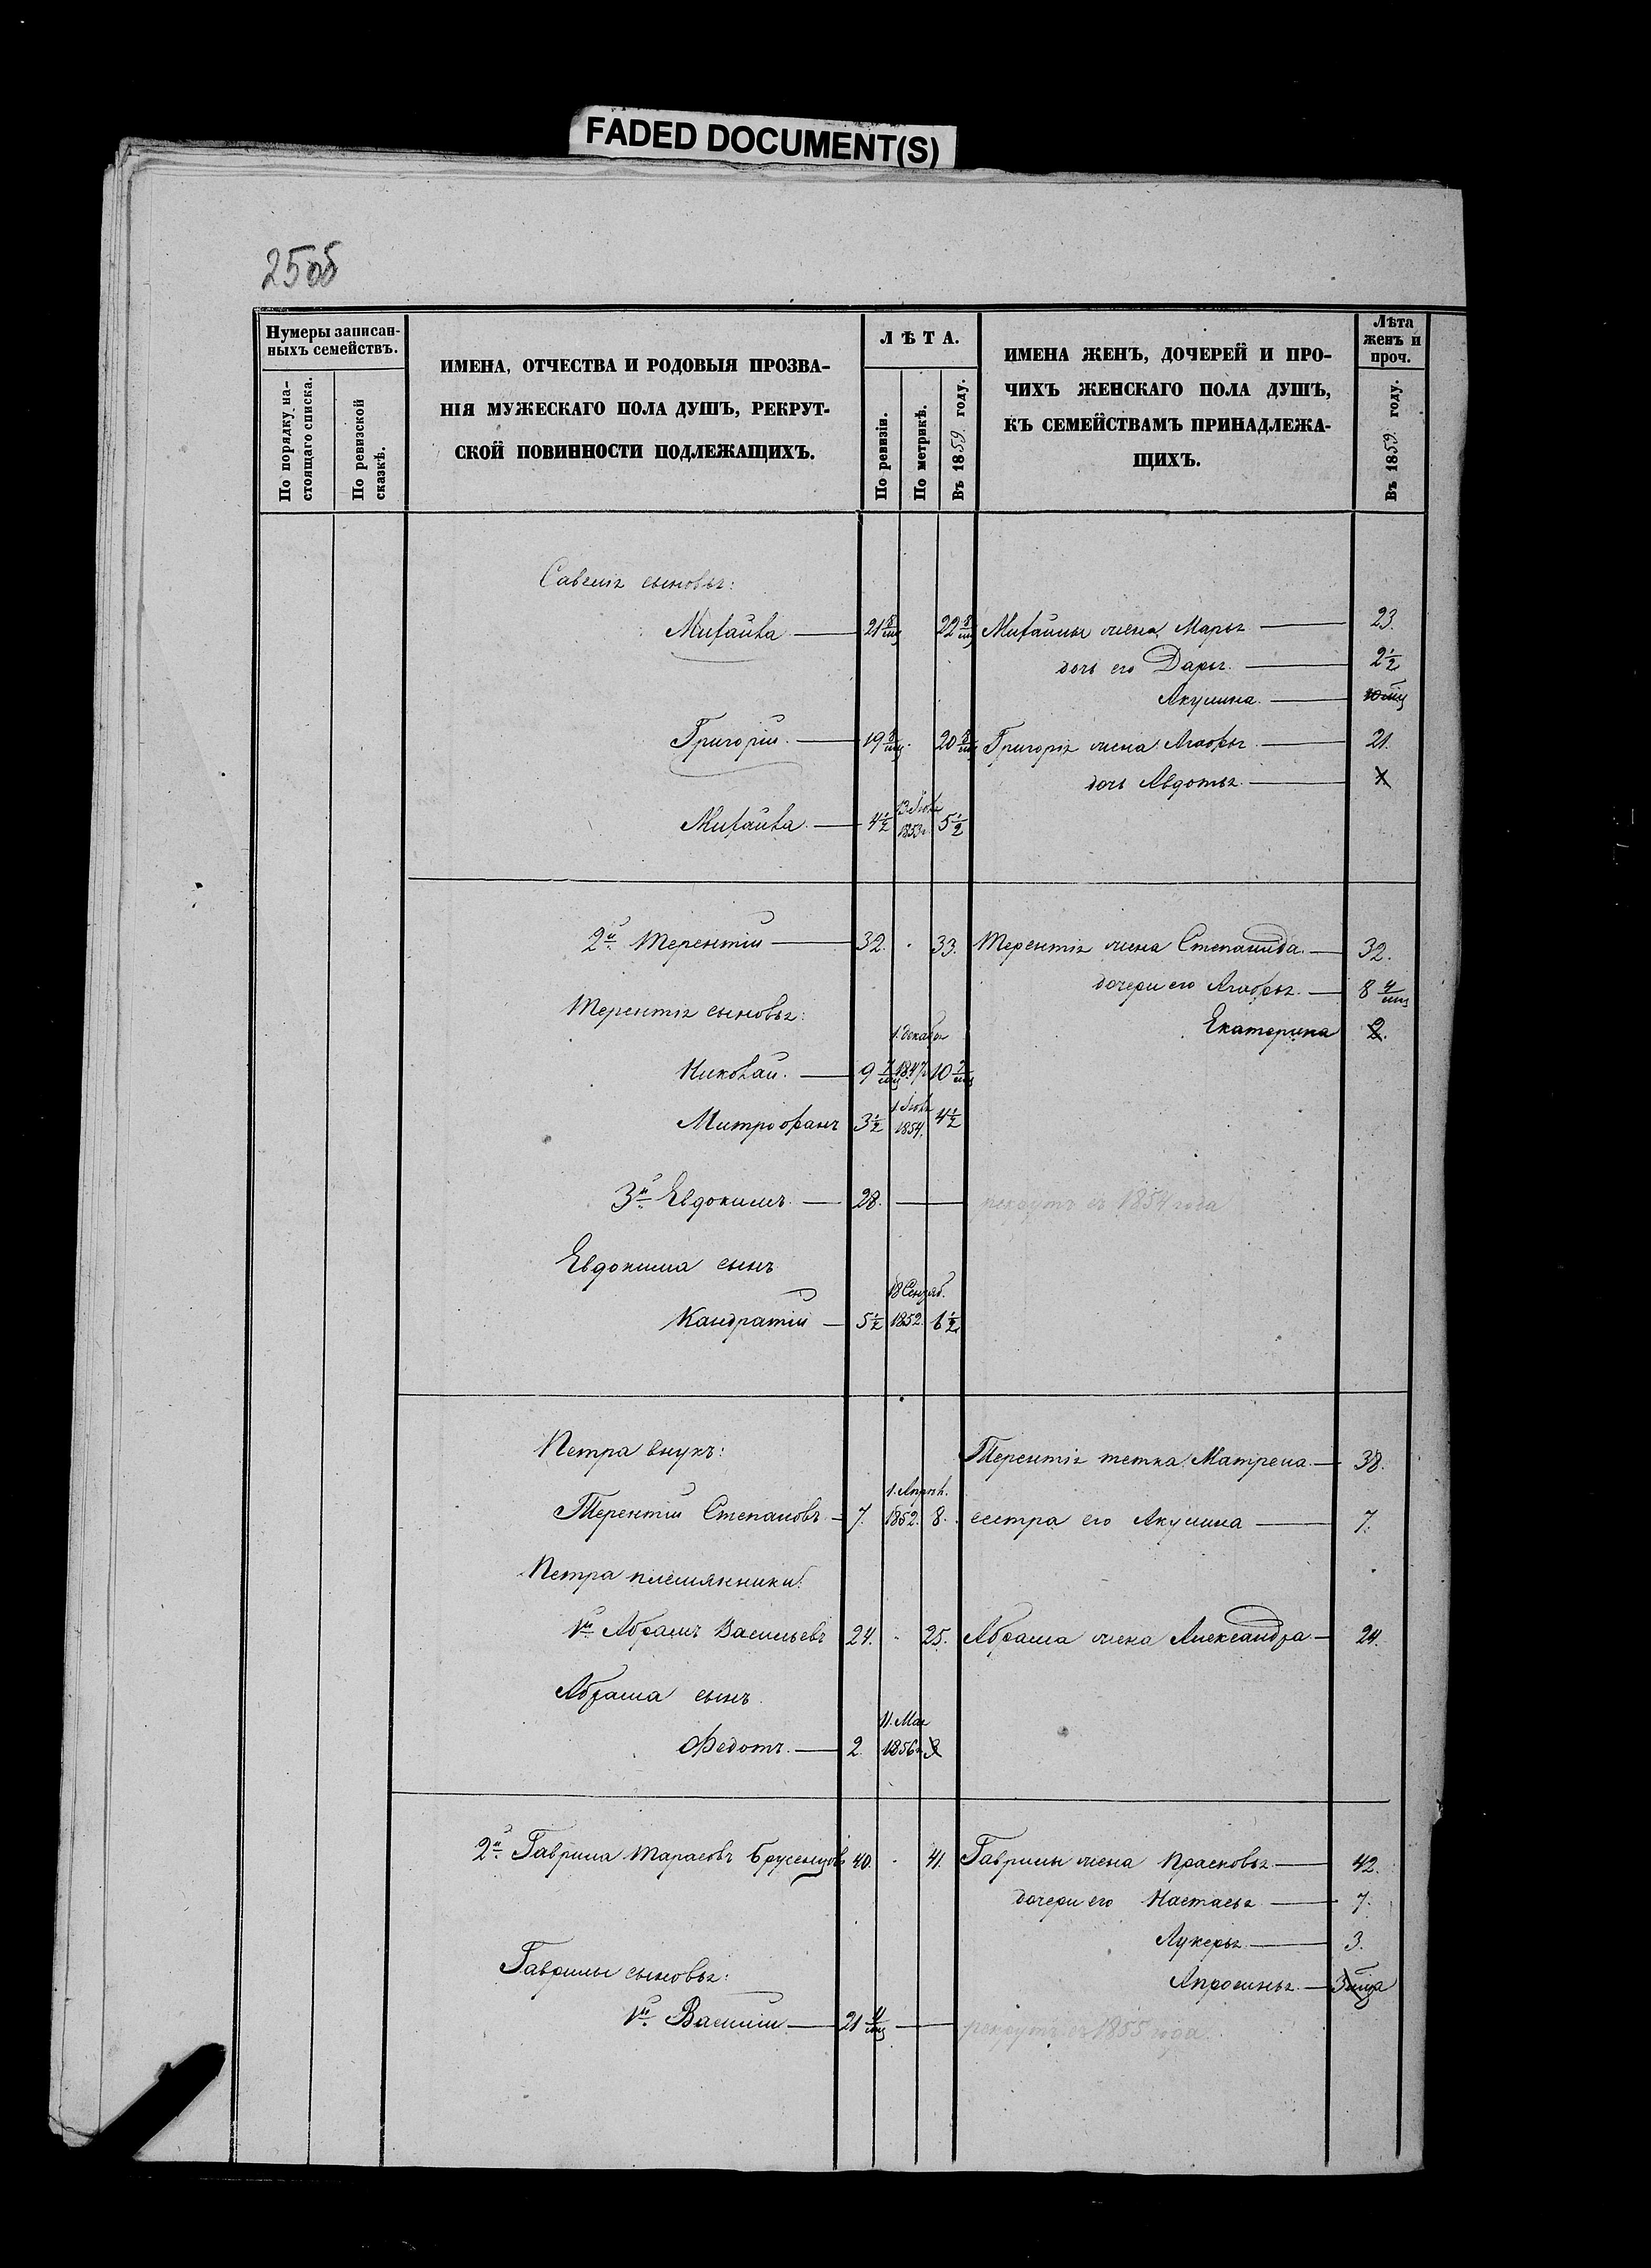 FADED DOCUMENT(S)
25об
Нумеры записан-
ныхъ семействъ.
По порядку на-
стоящаго списка.
По ревизской
сказкѣ.
ИМЕНА, ОТЧЕСТВА И РОДОВЫЯ ПРОЗВА-
НІЯ МУЖЕСКАГО ПОЛА ДУШЪ, РЕКРУТ-
СКОЙ ПОВИННОСТИ ПОДЛЕЖАЩИХЪ.
ЛѢТА.
По ревизіи.
По метрикѣ.
Въ 1859. году.
ИМЕНА ЖЕНЪ, ДОЧЕРЕЙ И ПРО-
ЧИХЪ ЖЕНСКАГО ПОЛА ДУШЪ,
КЪ СЕМЕЙСТВАМЪ ПРИНАДЛЕЖА-
ЩИХЪ.
Лѣта
женъ и
проч.
Въ 1859. году.
Савелія сыновья:
Михайла — 21 8/мц 22 8/мц Михайлы жена Марья — 23.
дочь его Дарья. — 2 1/2
Акулина. — 10 мц
Григорій. — 19 8/мц. 20 8/мц Григорія жена Агафья — 21.
дочь Авдотья. —
Михайла. — 4 1/2 1853 5 1/2
2й Терентій — 32. 33. Терентія жена Степанида. — 32.
дочери его Агафья. — 8 4/мц
Терентія сыновья:
Екатерина 2.
1. декабря
Николай. — 9 7/мц 1847 10 7/мц
Митрофанъ 3 1/2 1854. 4 1/2
3й Евдокимъ. — 28. — рекрутъ съ 1854 года
Евдокима сынъ
18 Сентяб.
Кандратій — 5 1/2 1852. 6 1/2
Петра внукъ:
Терентія тетка Матрена. — 38.
1. Апрѣл.
Терентій Степановъ. — 7. 1852. 8. сестра его Акулина — 7.
Петра племянники:
1й Абрамъ Васильевъ 24. 25. Абрама жена Александра — 24.
Абрама сынъ.
11. Мая
Федотъ. — 2. 1856 3
2й Гаврила Тарасовъ Брусенцовъ 40. 41. Гаврилы жена Прасковья — 42.
дочери его Настасья — 7.
Лукерья — 3.
Гаврилы сыновья:
Апросинья. — 3 мца
1й Василій — 21 11/мц — рекрутъ съ 1855 года.